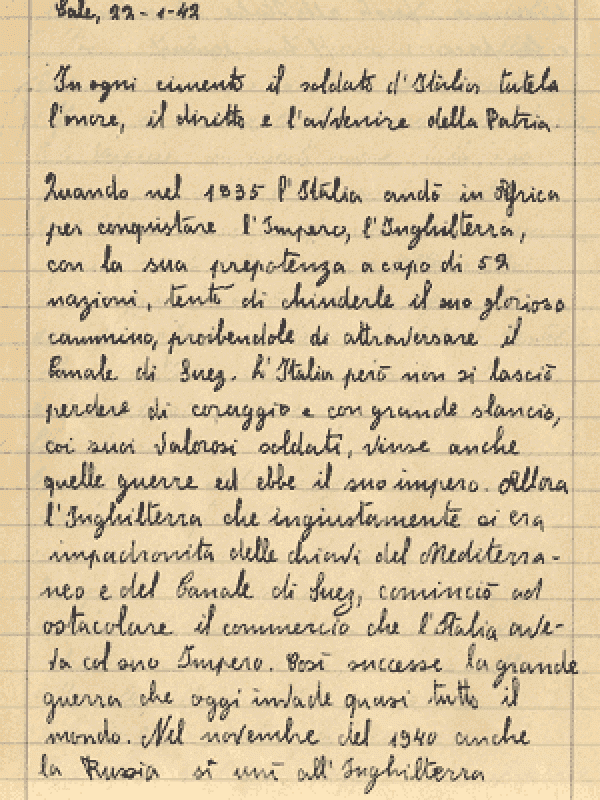 Sale, 22-1-42
In ogni cimento il soldato d'Italia tutela
l'onore, il diritto e l'avvenire della Patria.
Quando nel 1935 l'Italia andò in Africa
per conquistare l'Impero, l'Inghilterra,
con la sua prepotenza a capo di 52
nazioni, tentò di chinderle il suo glorioso
cammino, proibendole di attraversare il
Canale di Suez. L'Italia però non si lasciò
perdere di coraggio e con grande slancio,
coi suoi valorosi soldati, vinse anche
quelle guerre ed ebbe il suo impero. Allora
l'Inghilterra che ingiustamente si era
impadronita delle chiavi del Mediterra-
neo e del Canale di Suez, cominciò ad
ostacolare il commercio che l'Italia ave-
va col suo Impero. Così successe la grande
guerra che oggi invade quasi tutto il
mondo. Nel novembre del 1940 anche
la Russia si unì all'Inghilterra